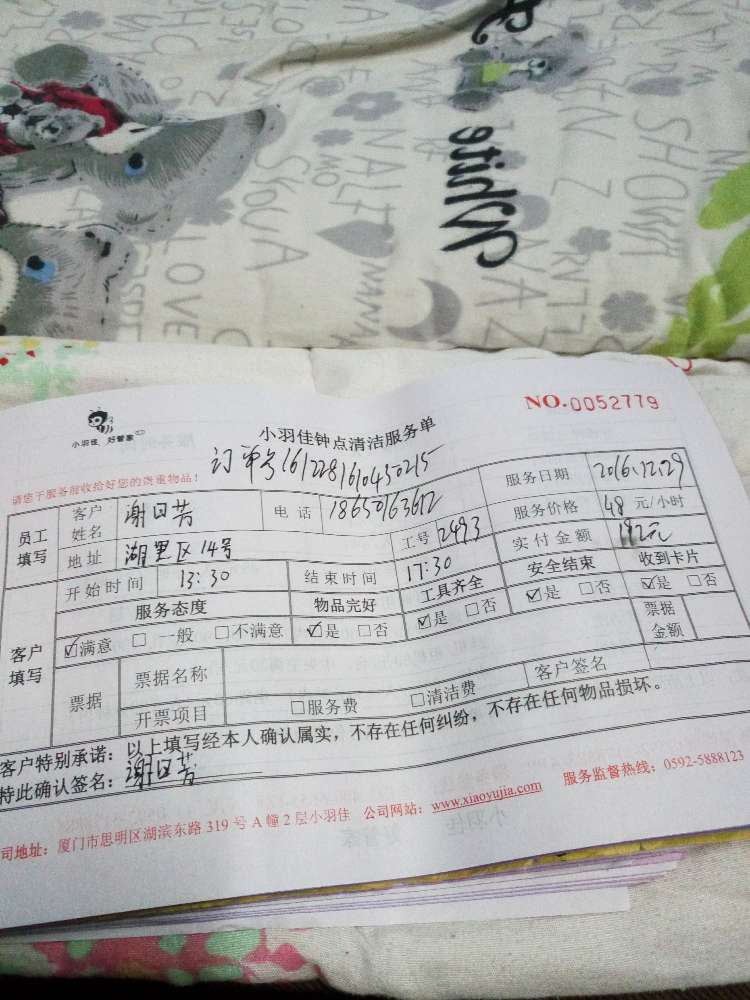 white
SHOW
LOVE
NO.0052779
小羽佳 好管家
小羽佳钟点清洁服务单
请您于服务前收给好您的贵重物品！
订单号161228161043０215
服务日期 2016.12.29
员工填写 客户姓名 谢日芳 电话 18650163612 服务价格 48 元/小时
地址 湖里区14号 工号 2493 实付金额 192元
开始时间 13:30 结束时间 17:30 安全结束 收到卡片
服务态度 物品完好 工具齐全 ☑是 □否 ☑是 □否
客户填写 ☑满意 □一般 □不满意 ☑是 □否 ☑是 □否 票据金额
票据 票据名称
开票项目 □服务费 □清洁费 客户签名
客户特别承诺：以上填写经本人确认属实，不存在任何纠纷，不存在任何物品损坏。
特此确认签名：谢日芳
司地址：厦门市思明区湖滨东路 319 号 A 幢 2 层小羽佳 公司网站：www.xiaoyujia.com 服务监督热线：0592-5888123